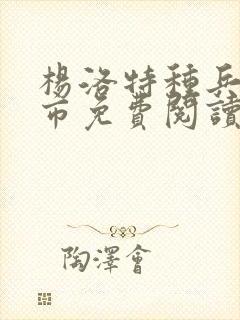 楊洛特種兵
市免費閱讀
陶澤會